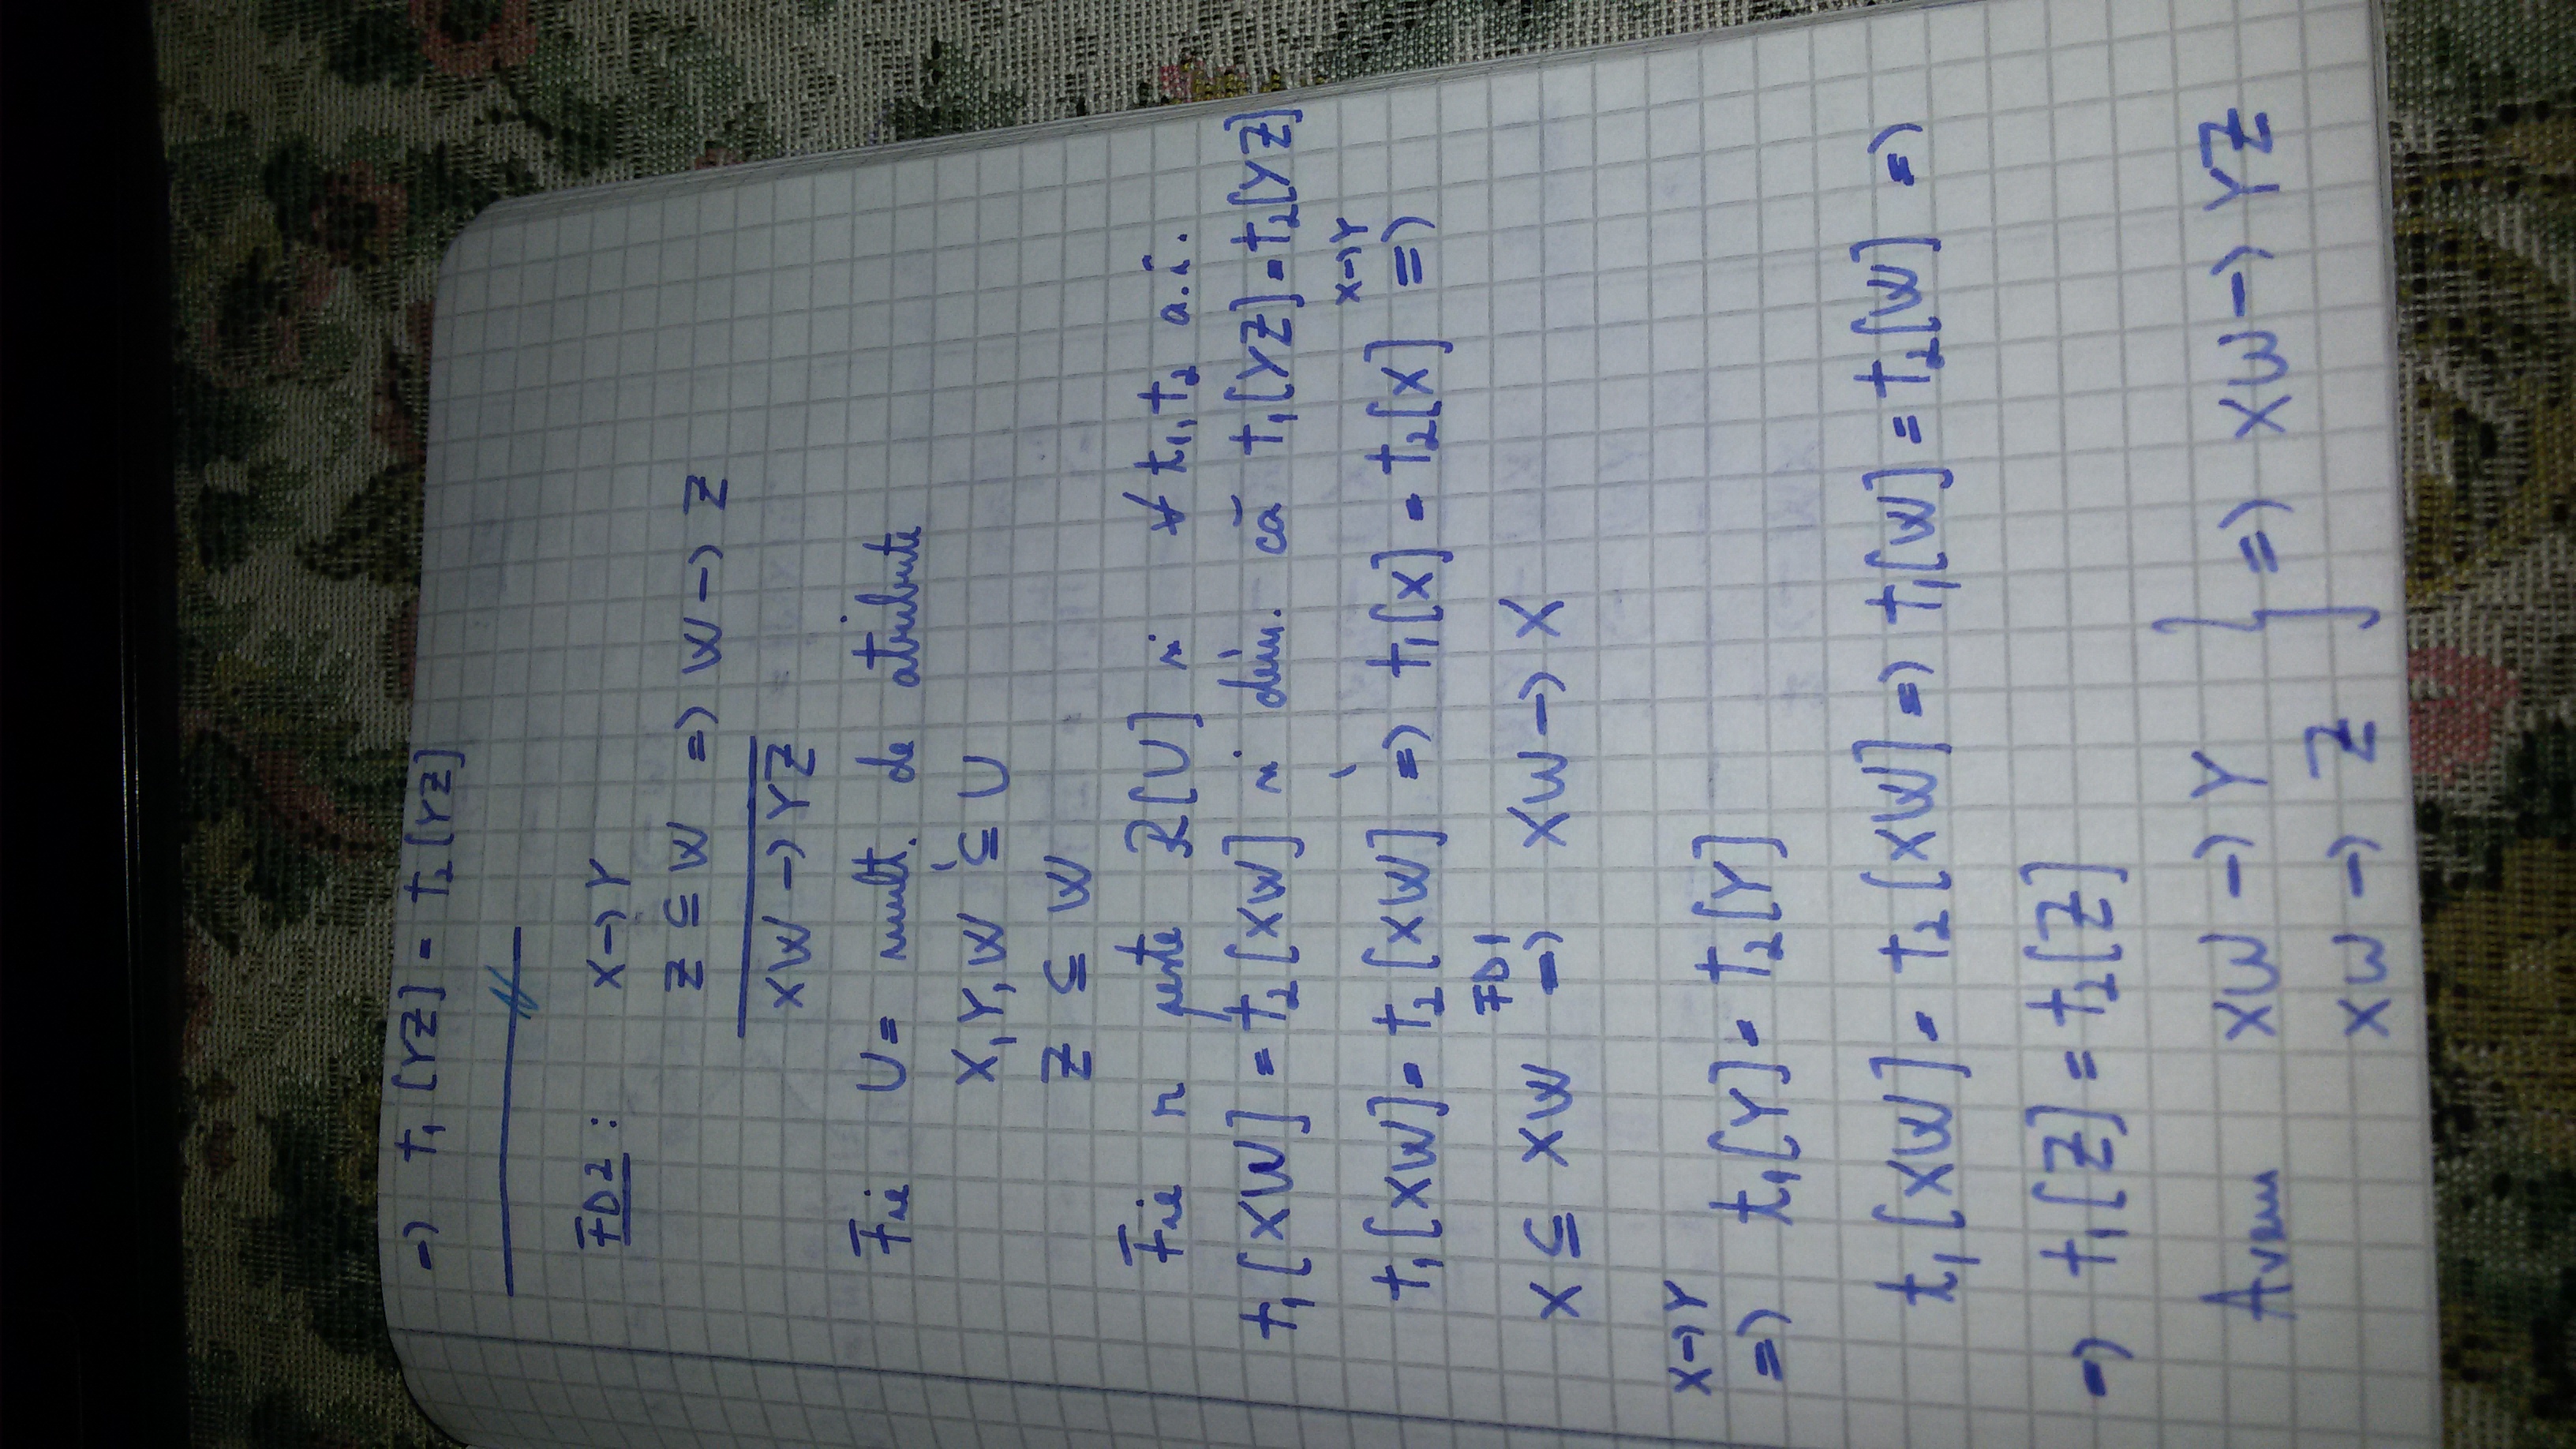 => t₁[YZ] = t₂[YZ]
FD2: X → Y
Z ⊆ W => W → Z
XW → YZ
Fie U = mult. de atribute
X, Y, W ⊆ U
Z ⊆ W
Fie r peste R[U] și ∀ t₁, t₂ a.î.
t₁[XW] = t₂[XW] și dem. că t₁[YZ] = t₂[YZ]
t₁[XW] = t₂[XW] => t₁[X] = t₂[X] X→Y =>
X ⊆ XW FD1 => XW → X
X→Y => t₁[Y] = t₂[Y]
t₁[XW] = t₂[XW] => t₁[W] = t₂[W] =>
=> t₁[Z] = t₂[Z]
Avem XW → Y } => XW → YZ
XW → Z